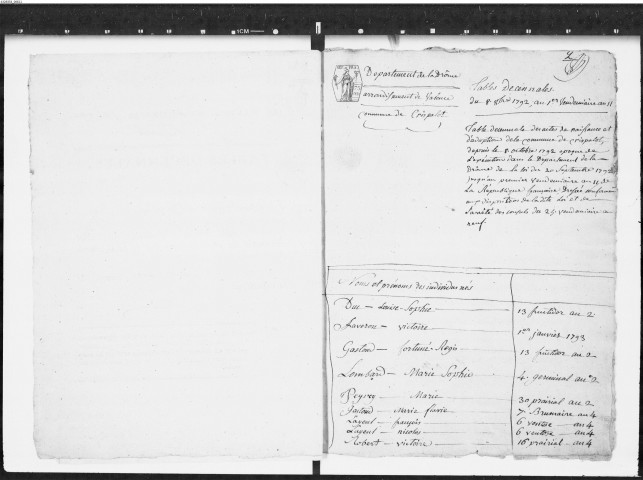 1CM
Departement de la Drôme
arrondissement de Valence
commune de
Tables decennales
du 8 8bre 1792 au 1er Vendemiaire an 11
Table decennale des actes de naissance et
d'adoption de la commune de
depuis le 8 octobre 1792 epoque de
l'execution dans le Departement de la
Drôme de la loi du 20 Septembre 1792
jusqu'au premier vendemiaire an 11 de
La Republique française Dressée conformement
aux dispositions de la dite Loi et de
l'arrêté des consuls du 25 vendemiaire an
neuf.
Noms et prénoms des individus nés
Duc - Louise Sophie 13 fructidor an 2
Faverou - victoire 1er janvier 1793
Gastoud - fortuné Regis 13 fructidor an 2
Lombard - Marie Sophie 4 germinal an 2
Peyrey - Marie 30 prairial an 2
Gastoud - Marie flavie 7 Brumaire an 4
6 ventose an 4
nicolas 6 ventose an 4
Robert - victoire 16 prairial an 4